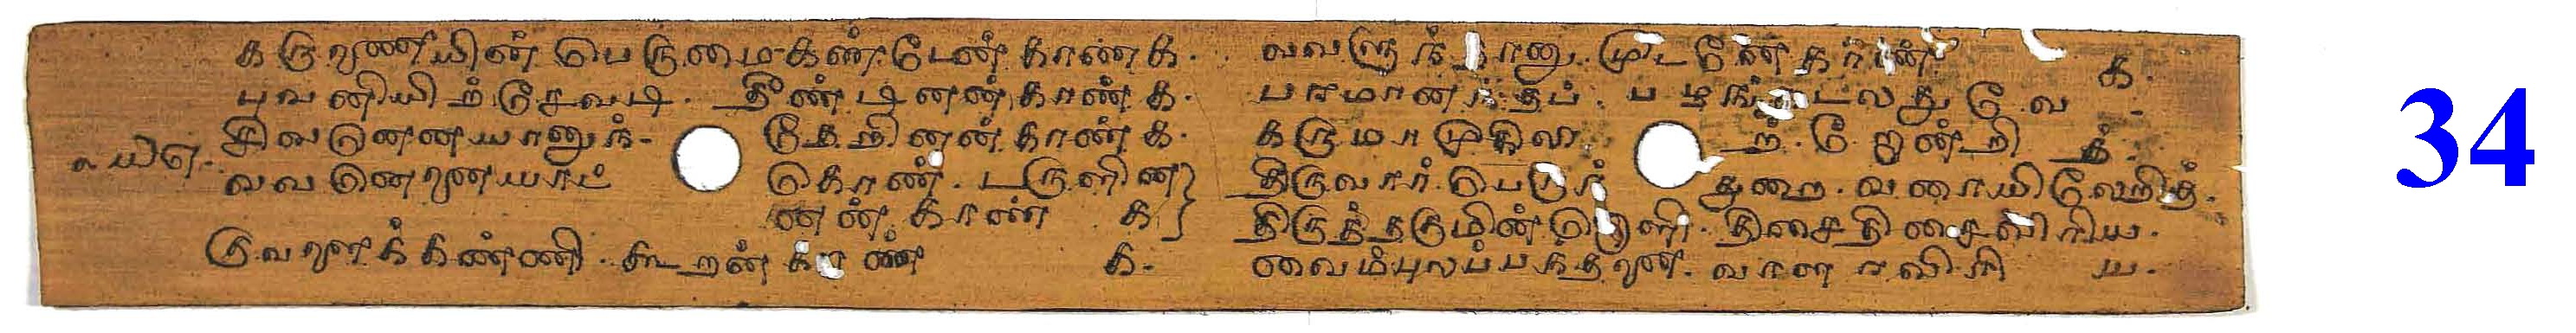 கருணையின் பெருமை கண்டேன் காண்க.
புவனியிற் சேவடி. தீண்டினன் காண்க.
சிவனெனயானுந்.
தேறினன் காண்க.
அவனெனையாட்
கொண். டருளின
னன் காண் க
குவளைக்கண்ணி. கூறன் காண் க.
அவளுந்தானு முடனே காண் க.
பரமானந்தப். பழங்கடலது வே.
கருமாமுகிலி ற். றோன்றி த்.
திருவார் பெருந் துறை. வரையிலேறித்.
திருத்தகுமின்னொளி. திசைதிசைவிரிய.
வைம்புலப்பந்தனை. வாளரவிரி ய.
34